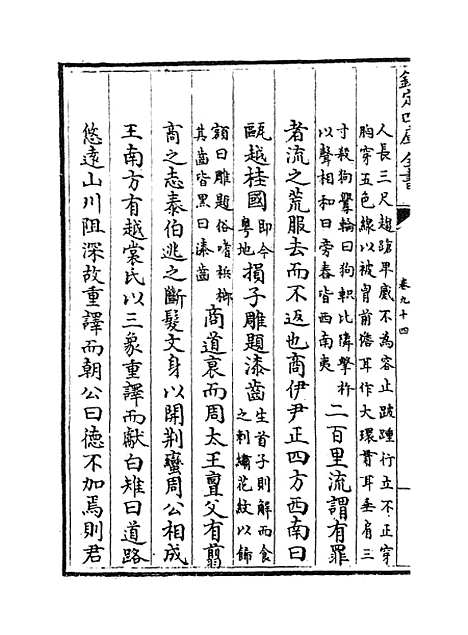 欽定四庫全書
卷九十四
人長三尺卑戚不為容止跛踵行立不正穿
胸穿五色線以被胃前儋耳作大環貫耳垂肩三
寸殺狗輪曰狗軹比隣擊柞
以聲相和曰旁舂皆西南夷
二百里流謂有罪
者流之荒服去而不返也商伊尹正四方西南曰
甌越桂國即今粤地損子雕題漆齒生首子則解而食之刺繡花紋以飾
額曰雕題俗嗜梹榔
其齒皆黑曰漆齒
商道衰而周太王亶父有翦
商之志泰伯逃之斷髮文身以開荆蠻周公相成
王南方有越裳氏以三象重譯而獻白雉曰道路
悠遠山川阻深故重譯而朝公曰德不加焉則君